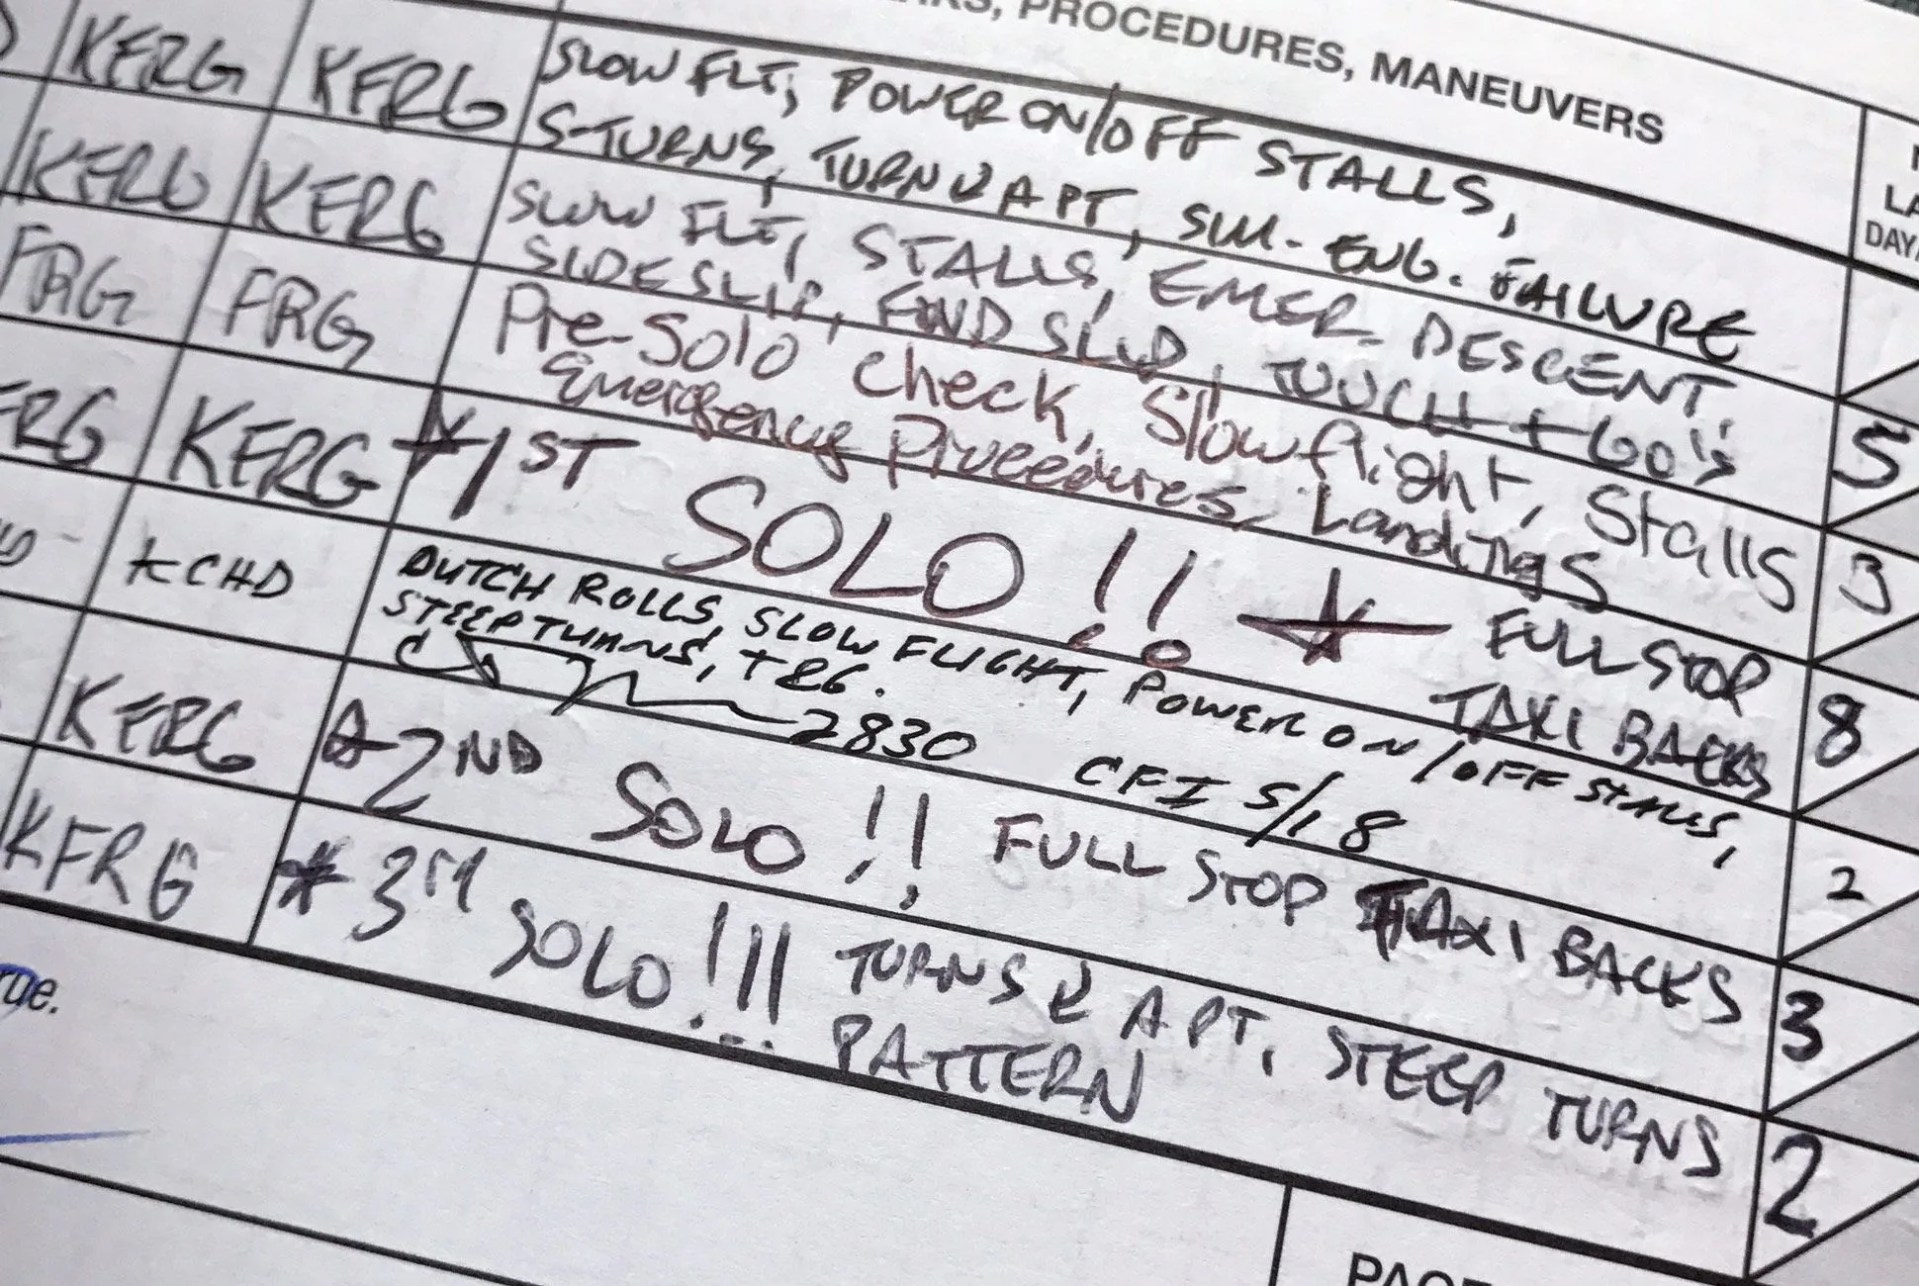 PROCEDURES, MANEUVERS
LA
DAY/
KFRG KFRG SLOW FLT, POWER ON/OFF STALLS,
S-TURNS, TURN APT, SIM. ENG. FAILURE
KFRG KFRG SLOW FLT, STALLS, EMER. DESCENT.
SIDESLIP, FWD SLIP, TOUCH + GO's 5
FRG FRG Pre-Solo check, Slow flight, Stalls
Emergency Procedures, Landings 3
FRG KFRG 1ST SOLO!! FULL STOP
TAXI BACKS 8
KCHD DUTCH ROLLS, SLOW FLIGHT, POWER ON/OFF STALLS,
STEEP TURNS, TRG. 2
2830 CFI 5/18
KFRG 2ND SOLO!! FULL STOP TAXI BACKS 3
KFRG * 3RD SOLO!!! TURNS APT, STEEP TURNS
PATTERN 2